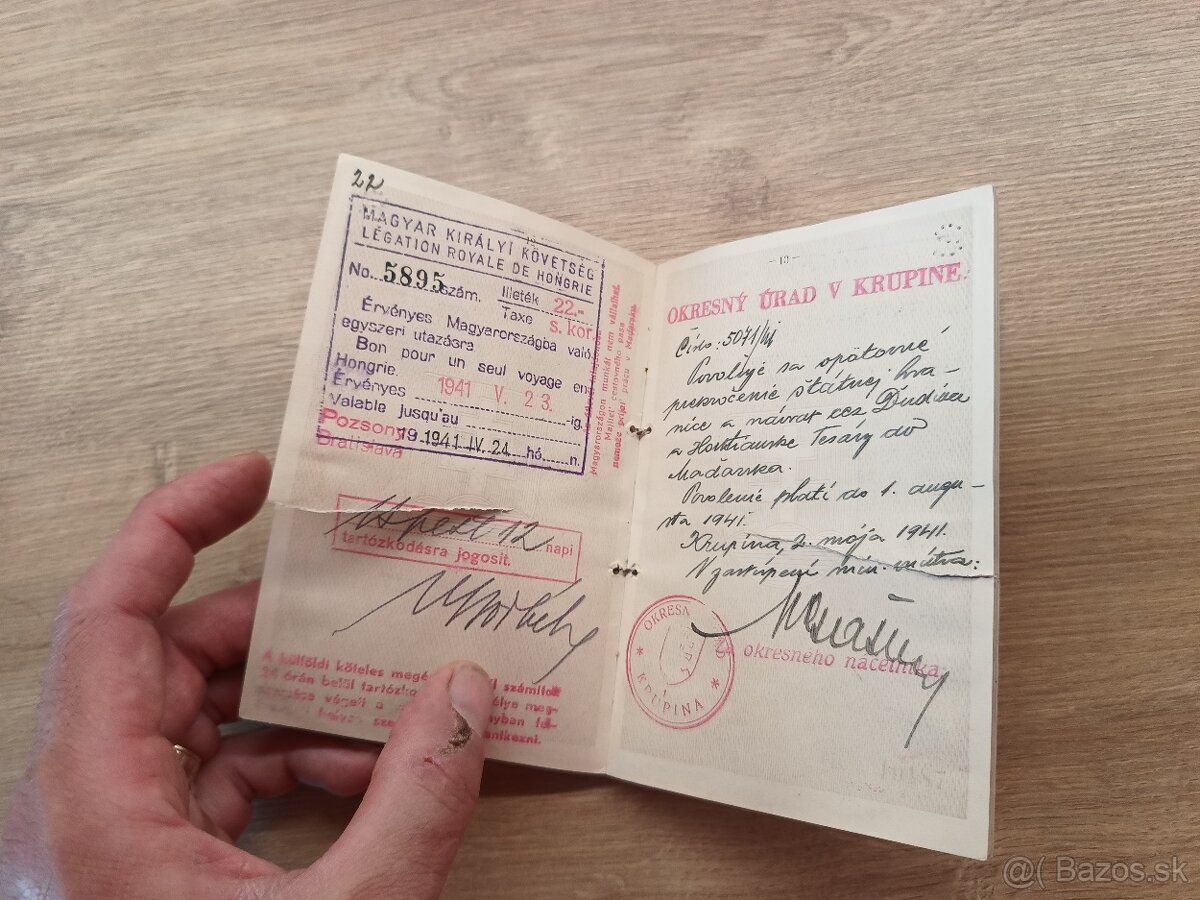 22
MAGYAR KIRÁLYI KÖVETSÉG
LÉGATION ROYALE DE HONGRIE
No. 5895 szám. Illeték 22.-
Taxe s. kor.
Érvényes Magyarországba való
egyszeri utazásra
Bon pour un seul voyage en
Hongrie.
Érvényes 1941 V. 23. -ig.
Valable jusqu'au
Pozsony 19 1941 IV. 24. hó n.
Bratislava
Magyarországon munkát nem vállalhat.
Majiteľ cestovného pasu
nemôže prijať prácu v Maďarsku
12 napi
tartózkodásra jogosít.
A külföldi köteles megér
24 órán belül
- 13 -
OKRESNÝ ÚRAD V KRUPINE
Číslo: 5071/
Povoľuje sa opätovné
prekročenie štátnej hra-
nice a návrat cez Ďudince
a Hontianske Tesáry do
Maďarska.
Povolenie platí do 1. augu-
sta 1941.
Krupina, 2. mája 1941.
V zastúpení
okresného náčelníka
OKRESNÝ
KRUPINA
@( Bazos.sk